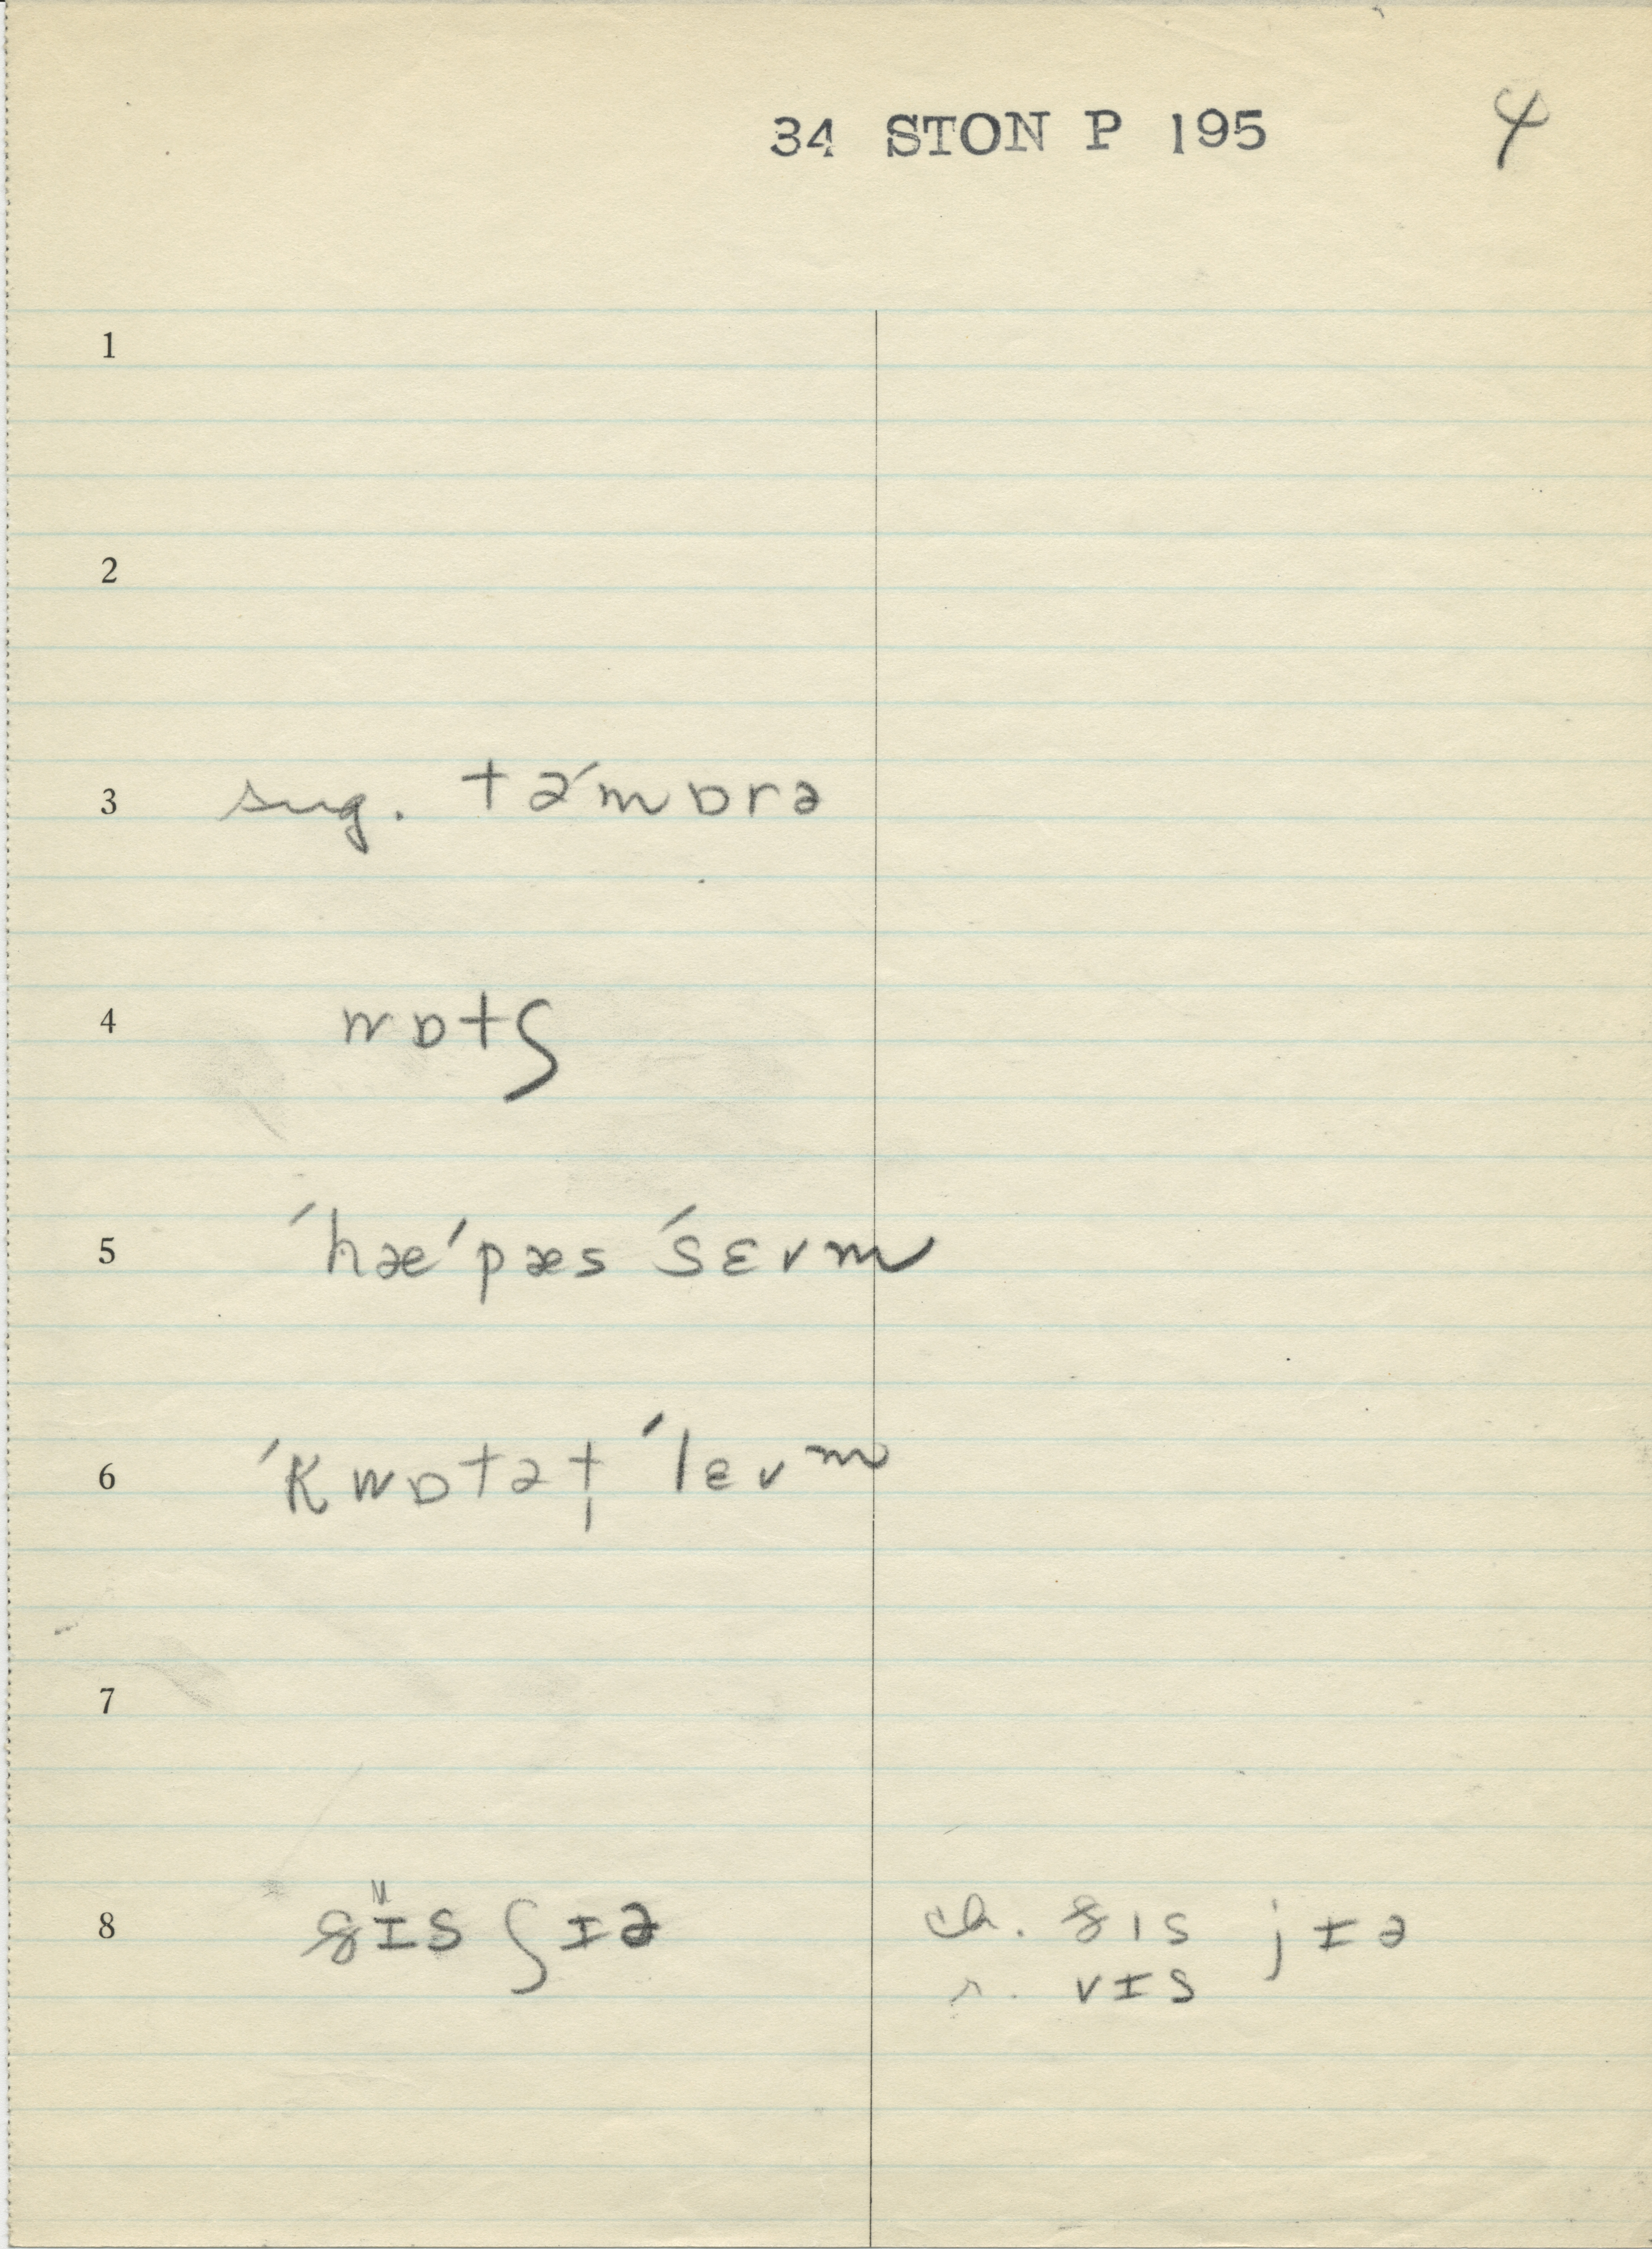 34 STON P 195 4
1
2
3 sug. təˊmɒrə
4 wɒtʃ
5 ˊhæˊpæs ˊsɛvm
6 ˊkwɒtət̩ ˊlɛvm
7
8 ɪs ʃɪə ch. ɪs jɪə
r. vɪs